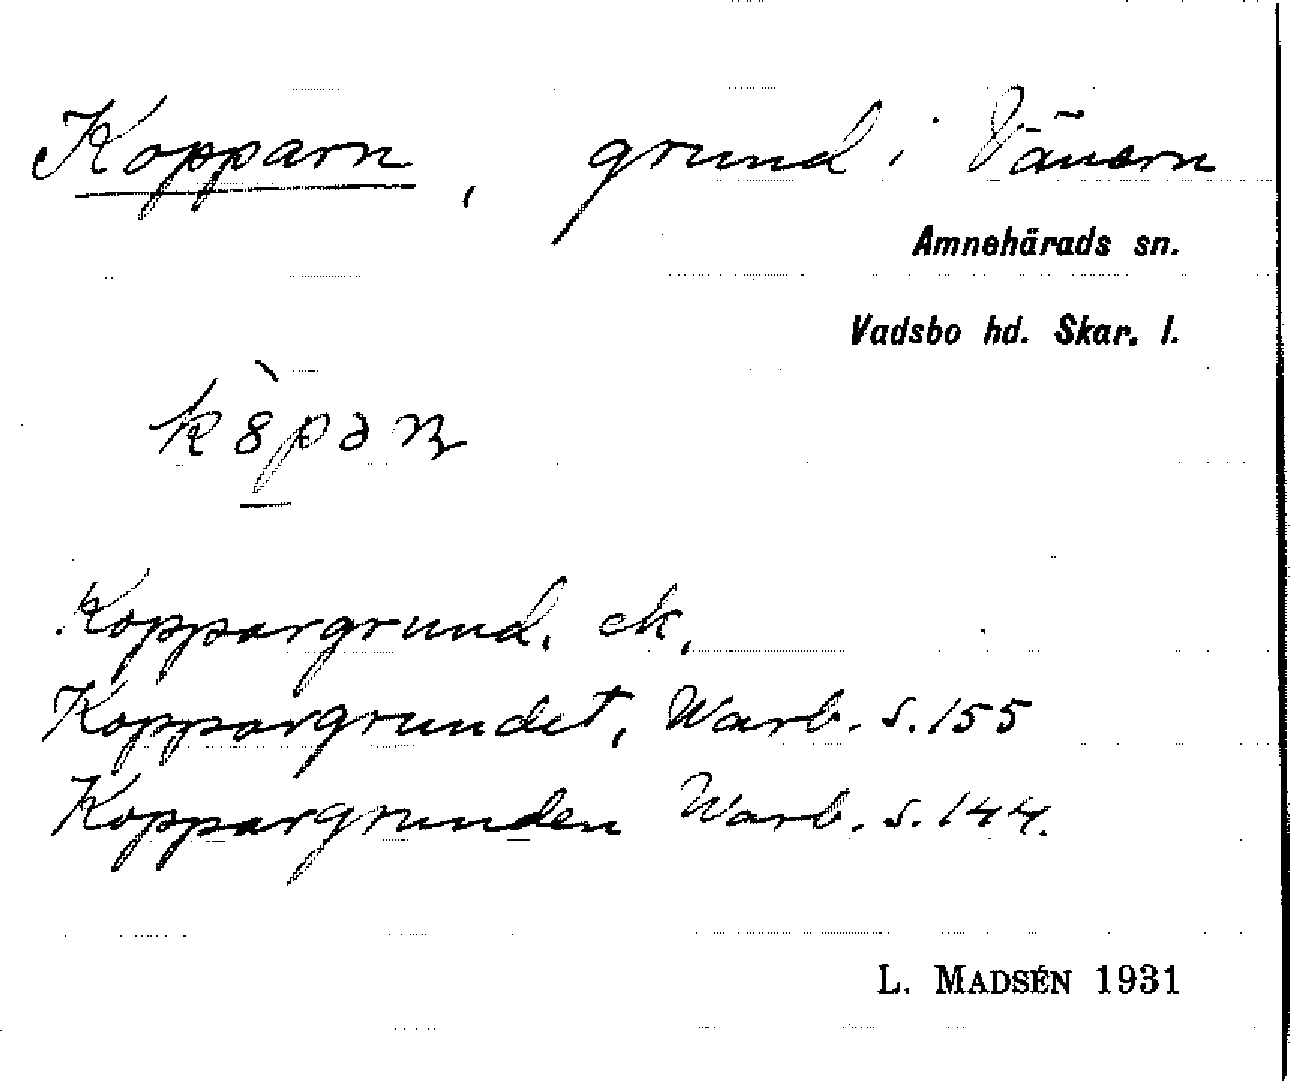 Kopparn, grund i Vänern
Amnehärads sn.
Vadsbo hd. Skar. l.
Koppargrund. ek,
Koppargrundet, Warb. s. 155
Koppargrunden Warb. s. 144.
L. MADSÉN 1931